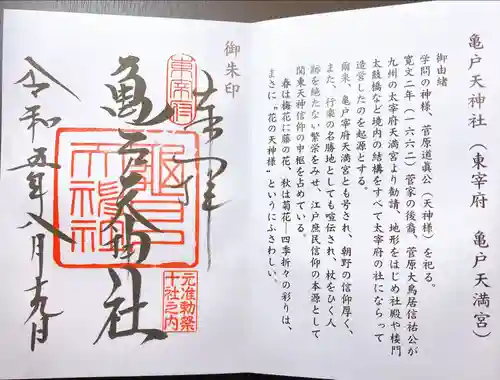 亀戸天神社（東宰府　亀戸天満宮）
御由緒
学問の神様、菅原道眞公（天神様）を祀る。
寛文二年（一六六二）菅家の後裔、菅原大鳥居信祐公が
九州の太宰府天満宮より勧請、地形をはじめ社殿や楼門
太鼓橋など境内の結構をすべて太宰府の社にならって
造営したのを起源とする。
爾来、亀戸宰府天満宮とも号され、朝野の信仰厚く、
また、行楽の名勝地としても喧伝され、杖をひく人
跡を絶たない繁栄をみせ、江戸庶民信仰の本源として
関東天神信仰の中枢を占めている。
春は梅花に藤の花、秋は菊花―四季折々の彩りは、
まさに〝花の天神様〟というにふさわしい。
御朱印
奉拝
東宰府
亀戸天神社
元准勅祭
十社之内
令和五年八月十九日